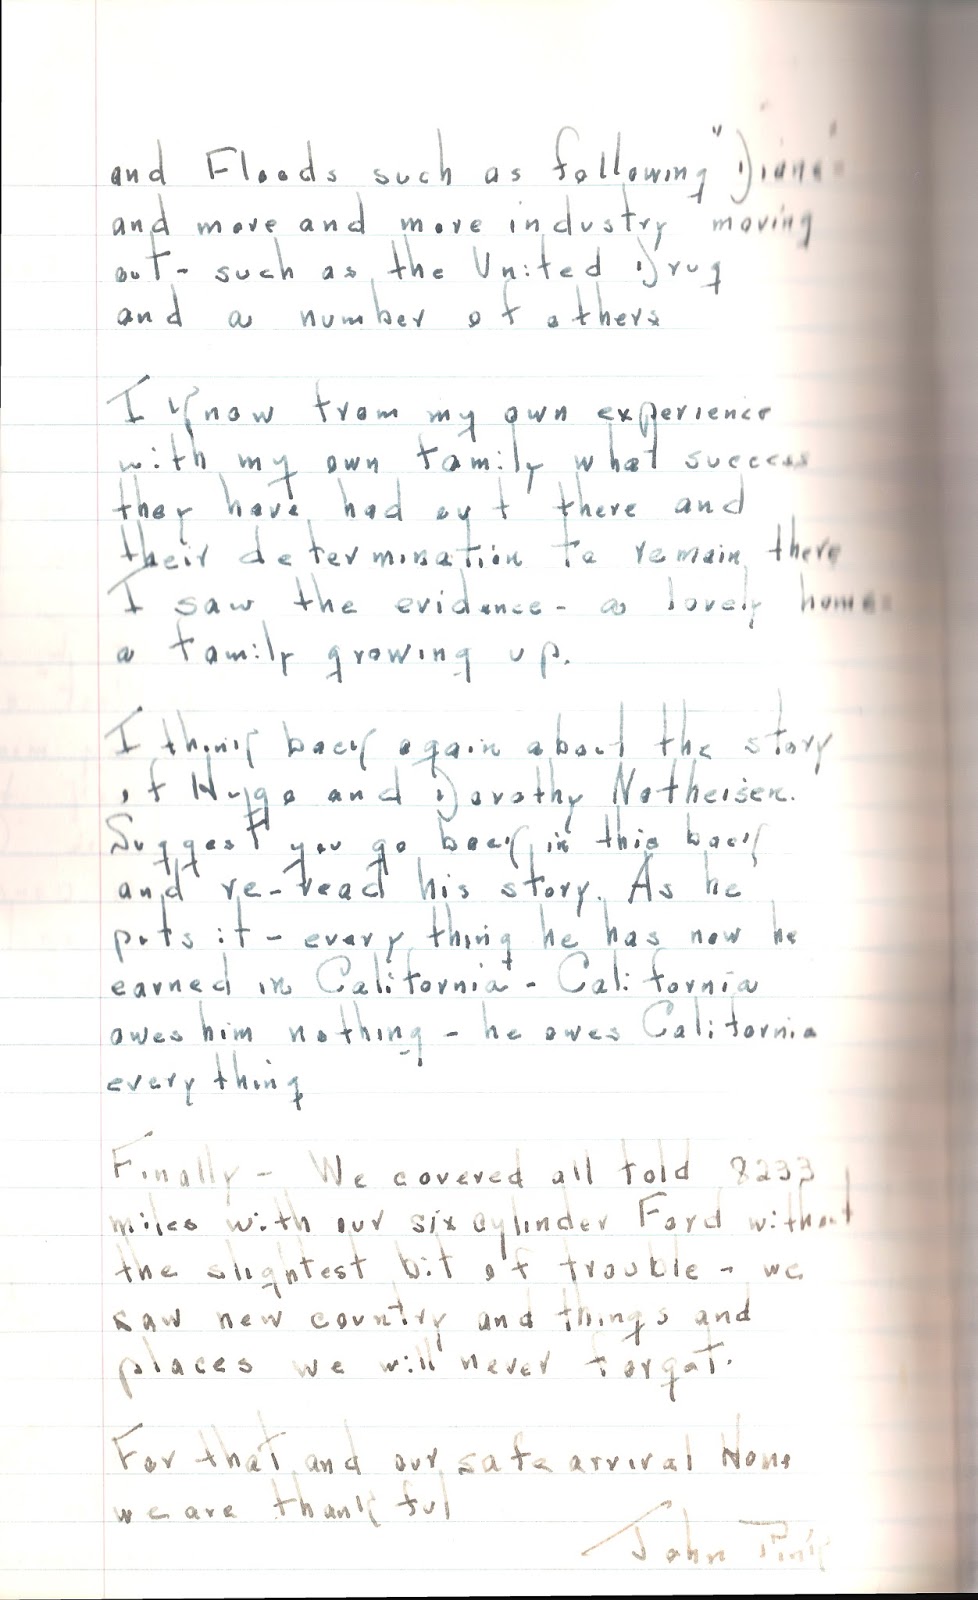 and Floods such as following "Diane"
and more and more industry moving
out - such as the United Drug
and a number of others
I know from my own experience
with my own family what success
they have had out there and
their determination to remain there
I saw the evidence - a lovely home -
a family growing up.
I think back again about the story
of Hugo and Dorothy Notheisen.
Suggest you go back in this back
and re-read his story. As he
puts it - every thing he has now he
earned in California - California
owes him nothing - he owes California
every thing
Finally - We covered all told 8233
miles with our six cylinder Ford without
the slightest bit of trouble - we
saw new country and things and
places we will never forgat.
For that and our safe arrival Home
we are thankful
John Pink